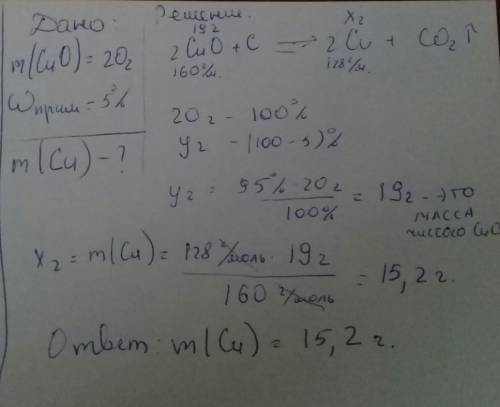 Дано:
m(CuO) = 20г
ωприм = 5%
m(Cu) - ?
Решение.
19г x г
2CuO + C ⟹ 2Cu + CO2↑
160г/м. 128г/м.
20г - 100%
yг - (100-5)%
yг = 95% · 20г / 100% = 19г - это
масса
чистого CuO
xг = m(Cu) = 128 г/моль · 19г / 160 г/моль = 15,2 г.
Ответ: m(Cu) = 15,2 г.